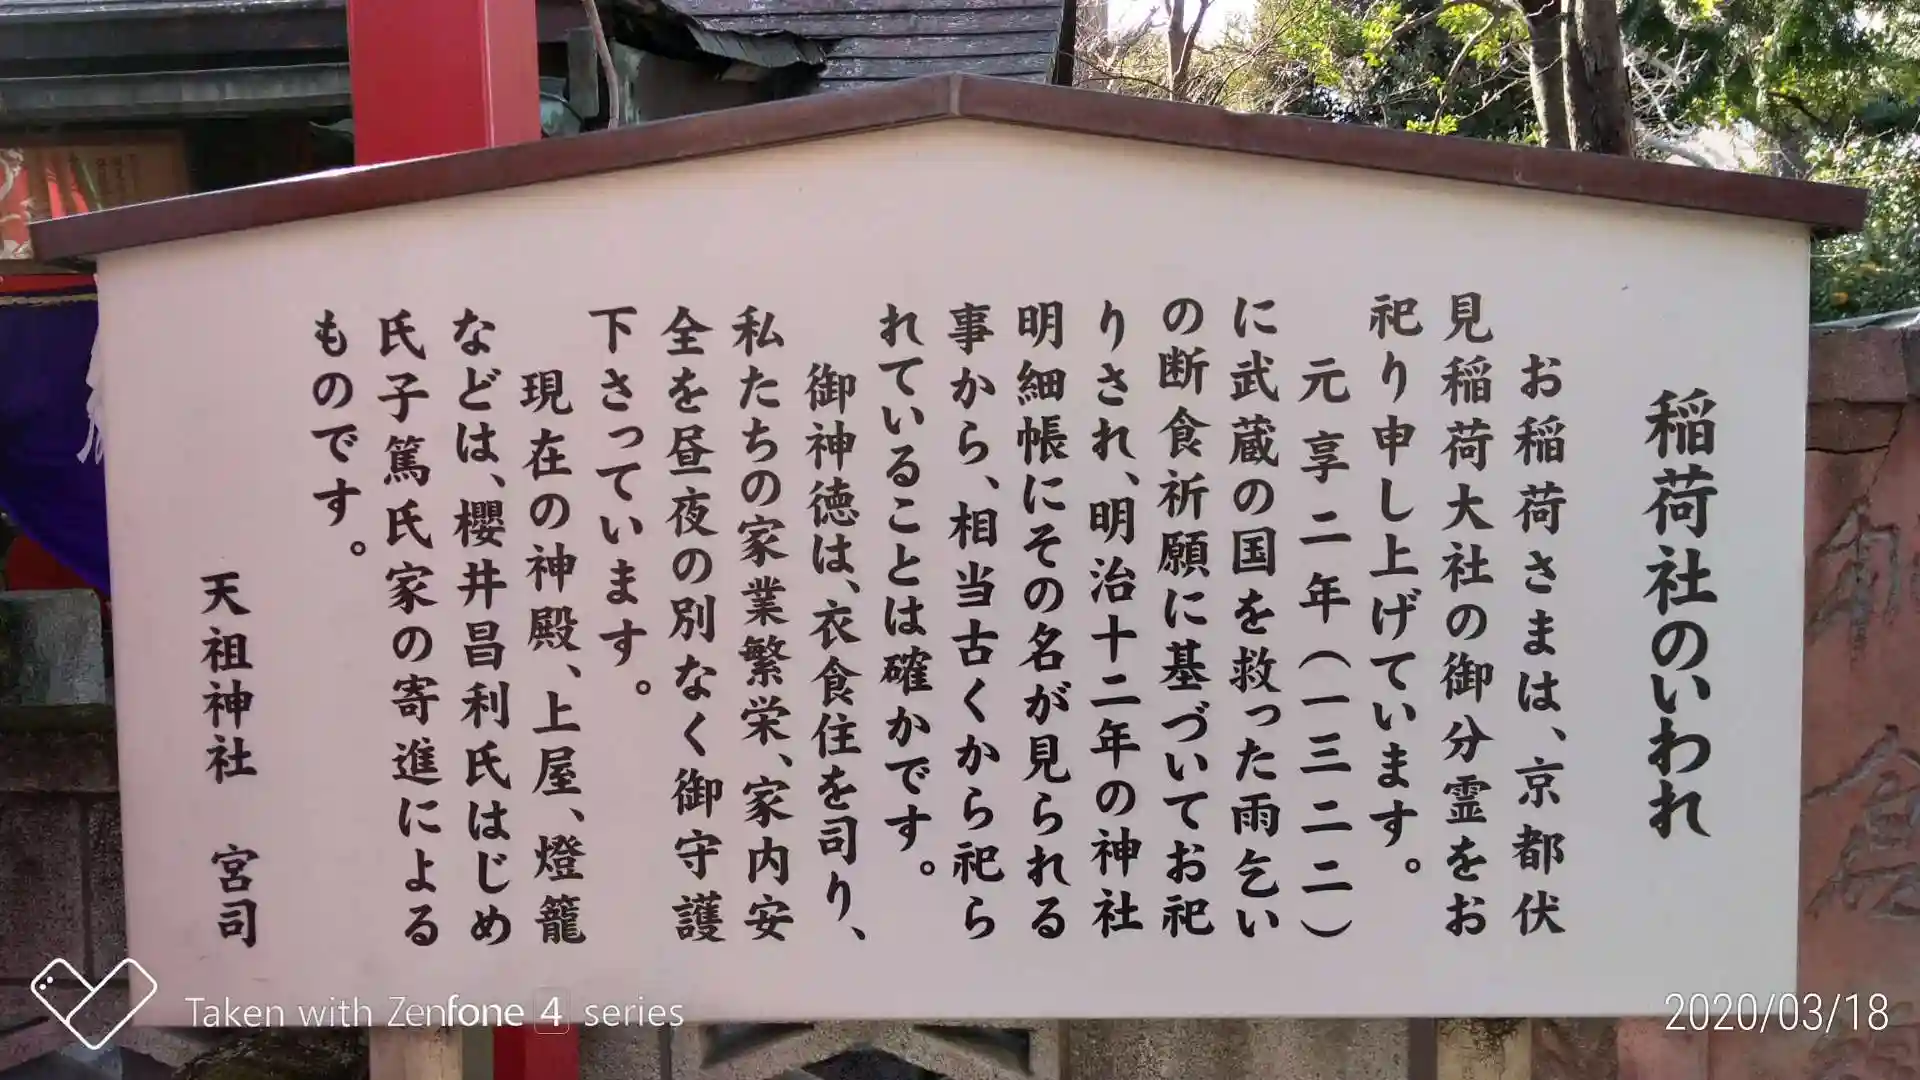 稲荷社のいわれ
お稲荷さまは、京都伏
見稲荷大社の御分霊をお
祀り申し上げています。
元享二年(一三二二)
に武蔵の国を救った雨乞い
の断食祈願に基づいてお祀
りされ、明治十二年の神社
明細帳にその名が見られる
事から、相当古くから祀ら
れていることは確かです。
御神徳は、衣食住を司り、
私たちの家業繁栄、家内安
全を昼夜の別なく御守護
下さっています。
現在の神殿、上屋、燈籠
などは、櫻井昌利氏はじめ
氏子篤氏家の寄進による
ものです。
天祖神社 宮司
Taken with Zenfone 4 series
2020/03/18